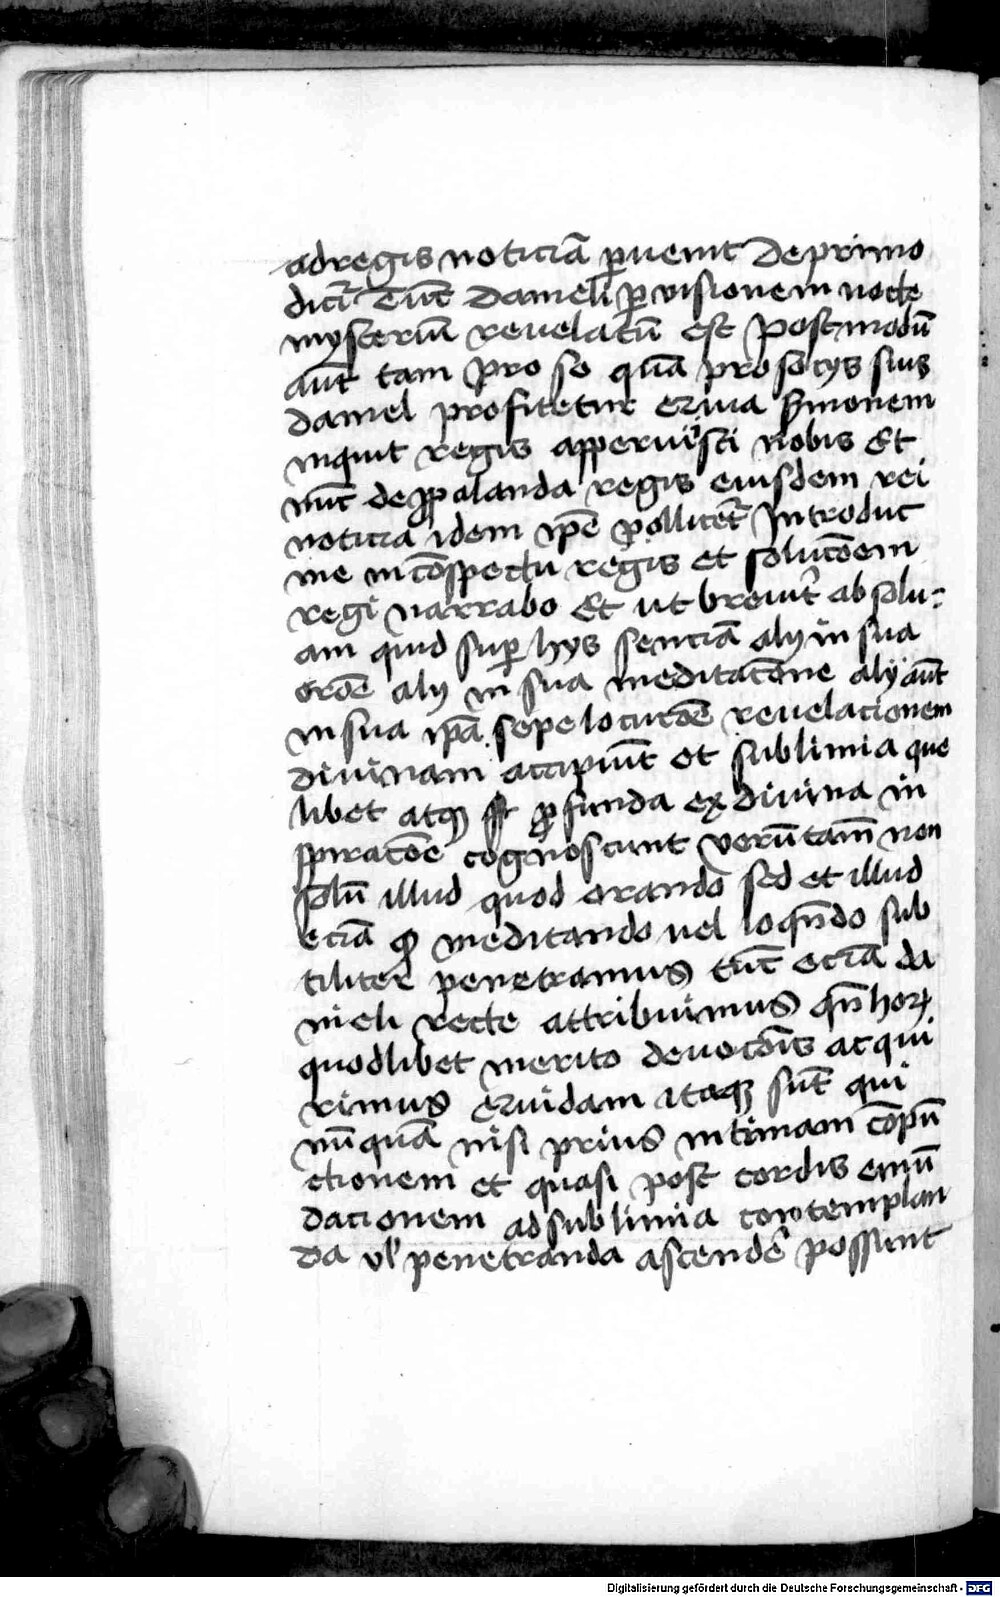 ad regis noticiā ꝑuenit De primo
dicit̄ Tūc danieli ꝑ visionem nocte
mysteriū reuelatū est Postmodū
aut̄ tam pro se quā pro socijs suis
daniel profitetur Sermonem
inquit regis apperuisti nobis Et
nūc de ꝓpalanda regis eiusdem rei
noticia idem ip̄e pollicet̄ Introduc
me in cōspectu regis et solucōem
regi narrabo Et ut breuit̄ absolu⸗
am quid suꝑ hijs senciā alij in sua
orōe alij in sua meditacōne alij aūt
in sua ip̄a sepe locucōe reuelacionem
diuinam accipiūt et sublimia que
libet atqꝫ ꝓfunda ex diuina in
spiracōe cognoscunt verūtam̄ non
solū illud quod orando sed et illud
eciā ꝙ meditando uel loqn̄do sub
tiliter penetramus tūc eciā da
nieli recte attribuimus qn̄ horꝝ
quodlibet merito deuocōis acqui
rimus Quidam itaqꝫ sūt qui
nūquā nisi prius intimam cōpū
ctionem et quasi post cordis emū
dacionem ad sublimia contemplan
da vl̓ penetranda ascendē possunt
Digitalisierung gefördert durch die Deutsche Forschungsgemeinschaft - DFG